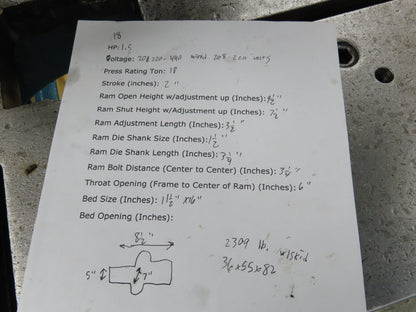 18
HP: 1.5
Voltage: 208-220-440 wired 208-220 volts
Press Rating Ton: 18
Stroke (inches): 2"
Ram Open Height w/adjustment up (Inches): 9½"
Ram Shut Height w/Adjustment up (Inches): 7½"
Ram Adjustment Length (Inches): 3½"
Ram Die Shank Size (Inches): 1½"
Ram Die Shank Length (Inches): 2¼"
Ram Bolt Distance (Center to Center) (Inches): 3¼"
Throat Opening (Frame to Center of Ram) (Inches): 6"
Bed Size (Inches): 11½" x16"
Bed Opening (Inches):
8½"
2309 lb. w/skid
5" 7"
36x55x82